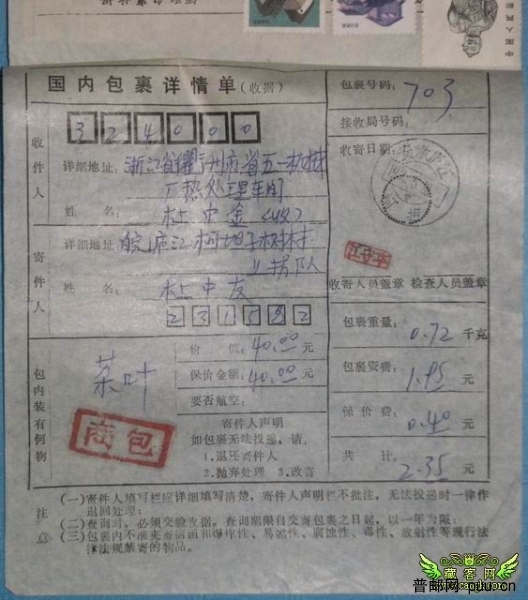 国内包裹详情单(收据)
包裹号码:
703
接收局号码:
收寄日期:
324000
收件人
详细地址:
浙江省衢州市省五一机械
厂热处理车间
姓 名:
杜中金(收)
寄件人
详细地址
皖庐江柯坦子树村
姓 名:
杜中友
231522
收寄人员盖章 检查人员盖章
包内装有何物
茶叶
商包
价 值:40.00元
保价金额:40.00元
要否航空:
寄件人声明
如包裹无法投递,请。
1.退还寄件人
2.抛弃处理 3.改寄
包裹重量:0.72千克
包裹资费:1.95元
保价费:0.40元
共 计:2.35元
注意
(一)寄件人填写栏应详细填写清楚,寄件人声明栏不批注,无法投递时一律作
退回处理;
(二)查询时,必须交验收据。查询期限自交寄包裹之日起,以一年为限;
(三)包裹内不准夹寄信函和爆炸性、易燃性、腐蚀性、毒性、放射性等现行法
律法规禁寄的物品。
藏客网
普邮网 piiu.cn